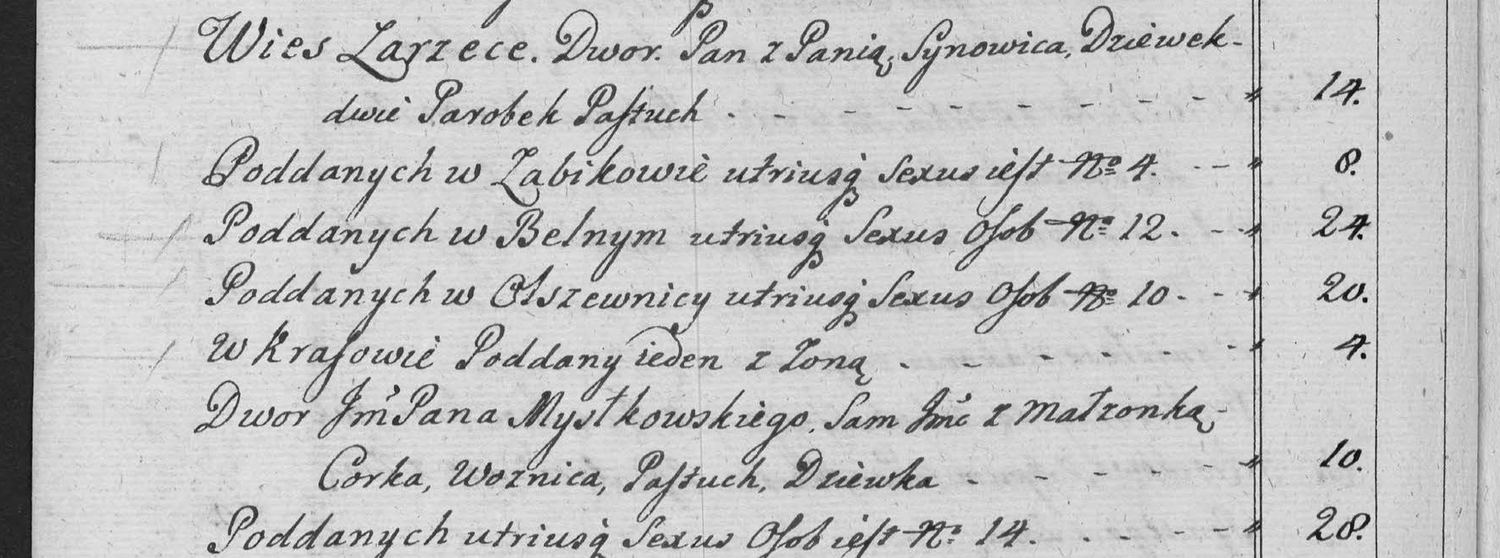 Wies Zarzece. Dwor. Pan z Panią, Synowica, Dziewek-
dwie Parobek Pastuch . - - - - - - - - " 14.
Poddanych w Zabikowie utriusq Sexus iest No 4. - - " 8.
Poddanych w Belnym utriusq Sexus Osob No 12. - - " 24.
Poddanych w Olszewnicy utriusq Sexus Osob No 10 - - " 20.
W Krasowie Poddany ieden z Zoną - - - - - - " 4.
Dwor Jmć Pana Mystkowskiego, Sam Jmć z małzonką-
Corka, Woznica, Pastuch, Dziewka - - - - - " 10.
Poddanych utriusq Sexus Osob iest No 14. - - - - " 28.